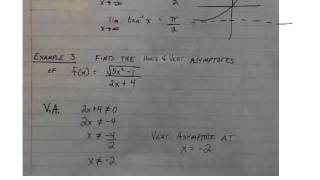 x→-∞ 2
lim tan⁻¹ x = π/2
x→∞
EXAMPLE 3 FIND THE HORIZ. & VERT. ASYMPTOTES
OF f(x) = √(5x²-1) / (2x+4)
V.A. 2x+4 ≠ 0
2x ≠ -4
x ≠ -4/2 VERT. ASYMPTOTE AT
x = -2
x ≠ -2